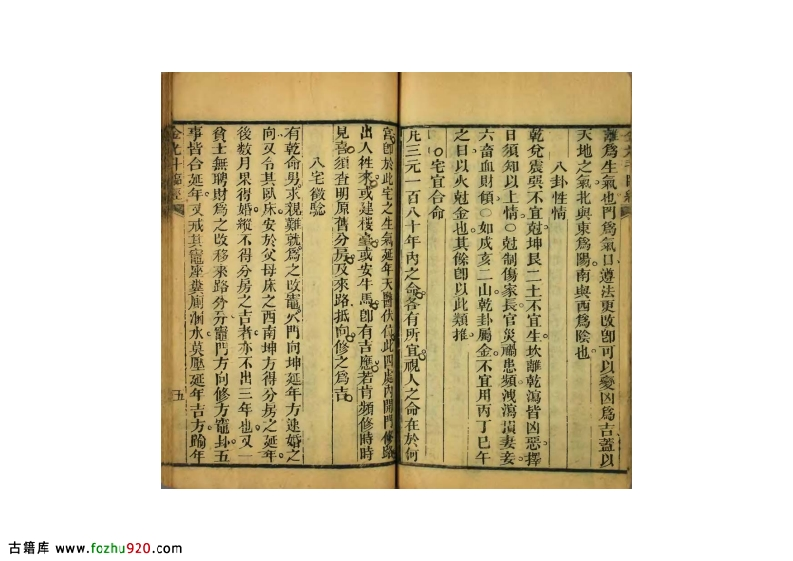 離爲生氣也門爲氣口遵法更改卽可以變凶爲吉蓋以
天地之氣北與東爲陽南與西爲陰也
八卦性情
乾兌震巽不宜尅坤艮二土不宜生坎離乾瀉皆凶惡擇
日須知以上情○尅制傷家長官災禍患頻洩瀉損妻妾
六畜血財類○如戌亥二山乾卦屬金不宜用丙丁巳午
之日以火尅金也其餘卽以此類推
○宅宜合命
凡三元一百八十年內之命各有所宜視人之命在於何
宮卽於此宅之生氣延年天醫伏位此四處內開門修路
出人往來或建樓臺或安牛馬卽有吉應若肯頻修時時
見喜須查明原舊分房及來路抵向修之爲吉
八宅徵驗
有乾命男求親難就爲之改竈火門向坤延年方速婚之
向又令其臥床安於父母床之西南坤方得分房之延年
後數月果得婚縱不得分房之吉者亦不出三年也又一
貧士無聘財爲之改移來路外分竈門方向修方竈卦五
事皆合延年又戒其竈座糞廁溷水莫壓延年吉方踰年
金光斗臨經
五
古籍库 www.fozhu920.com